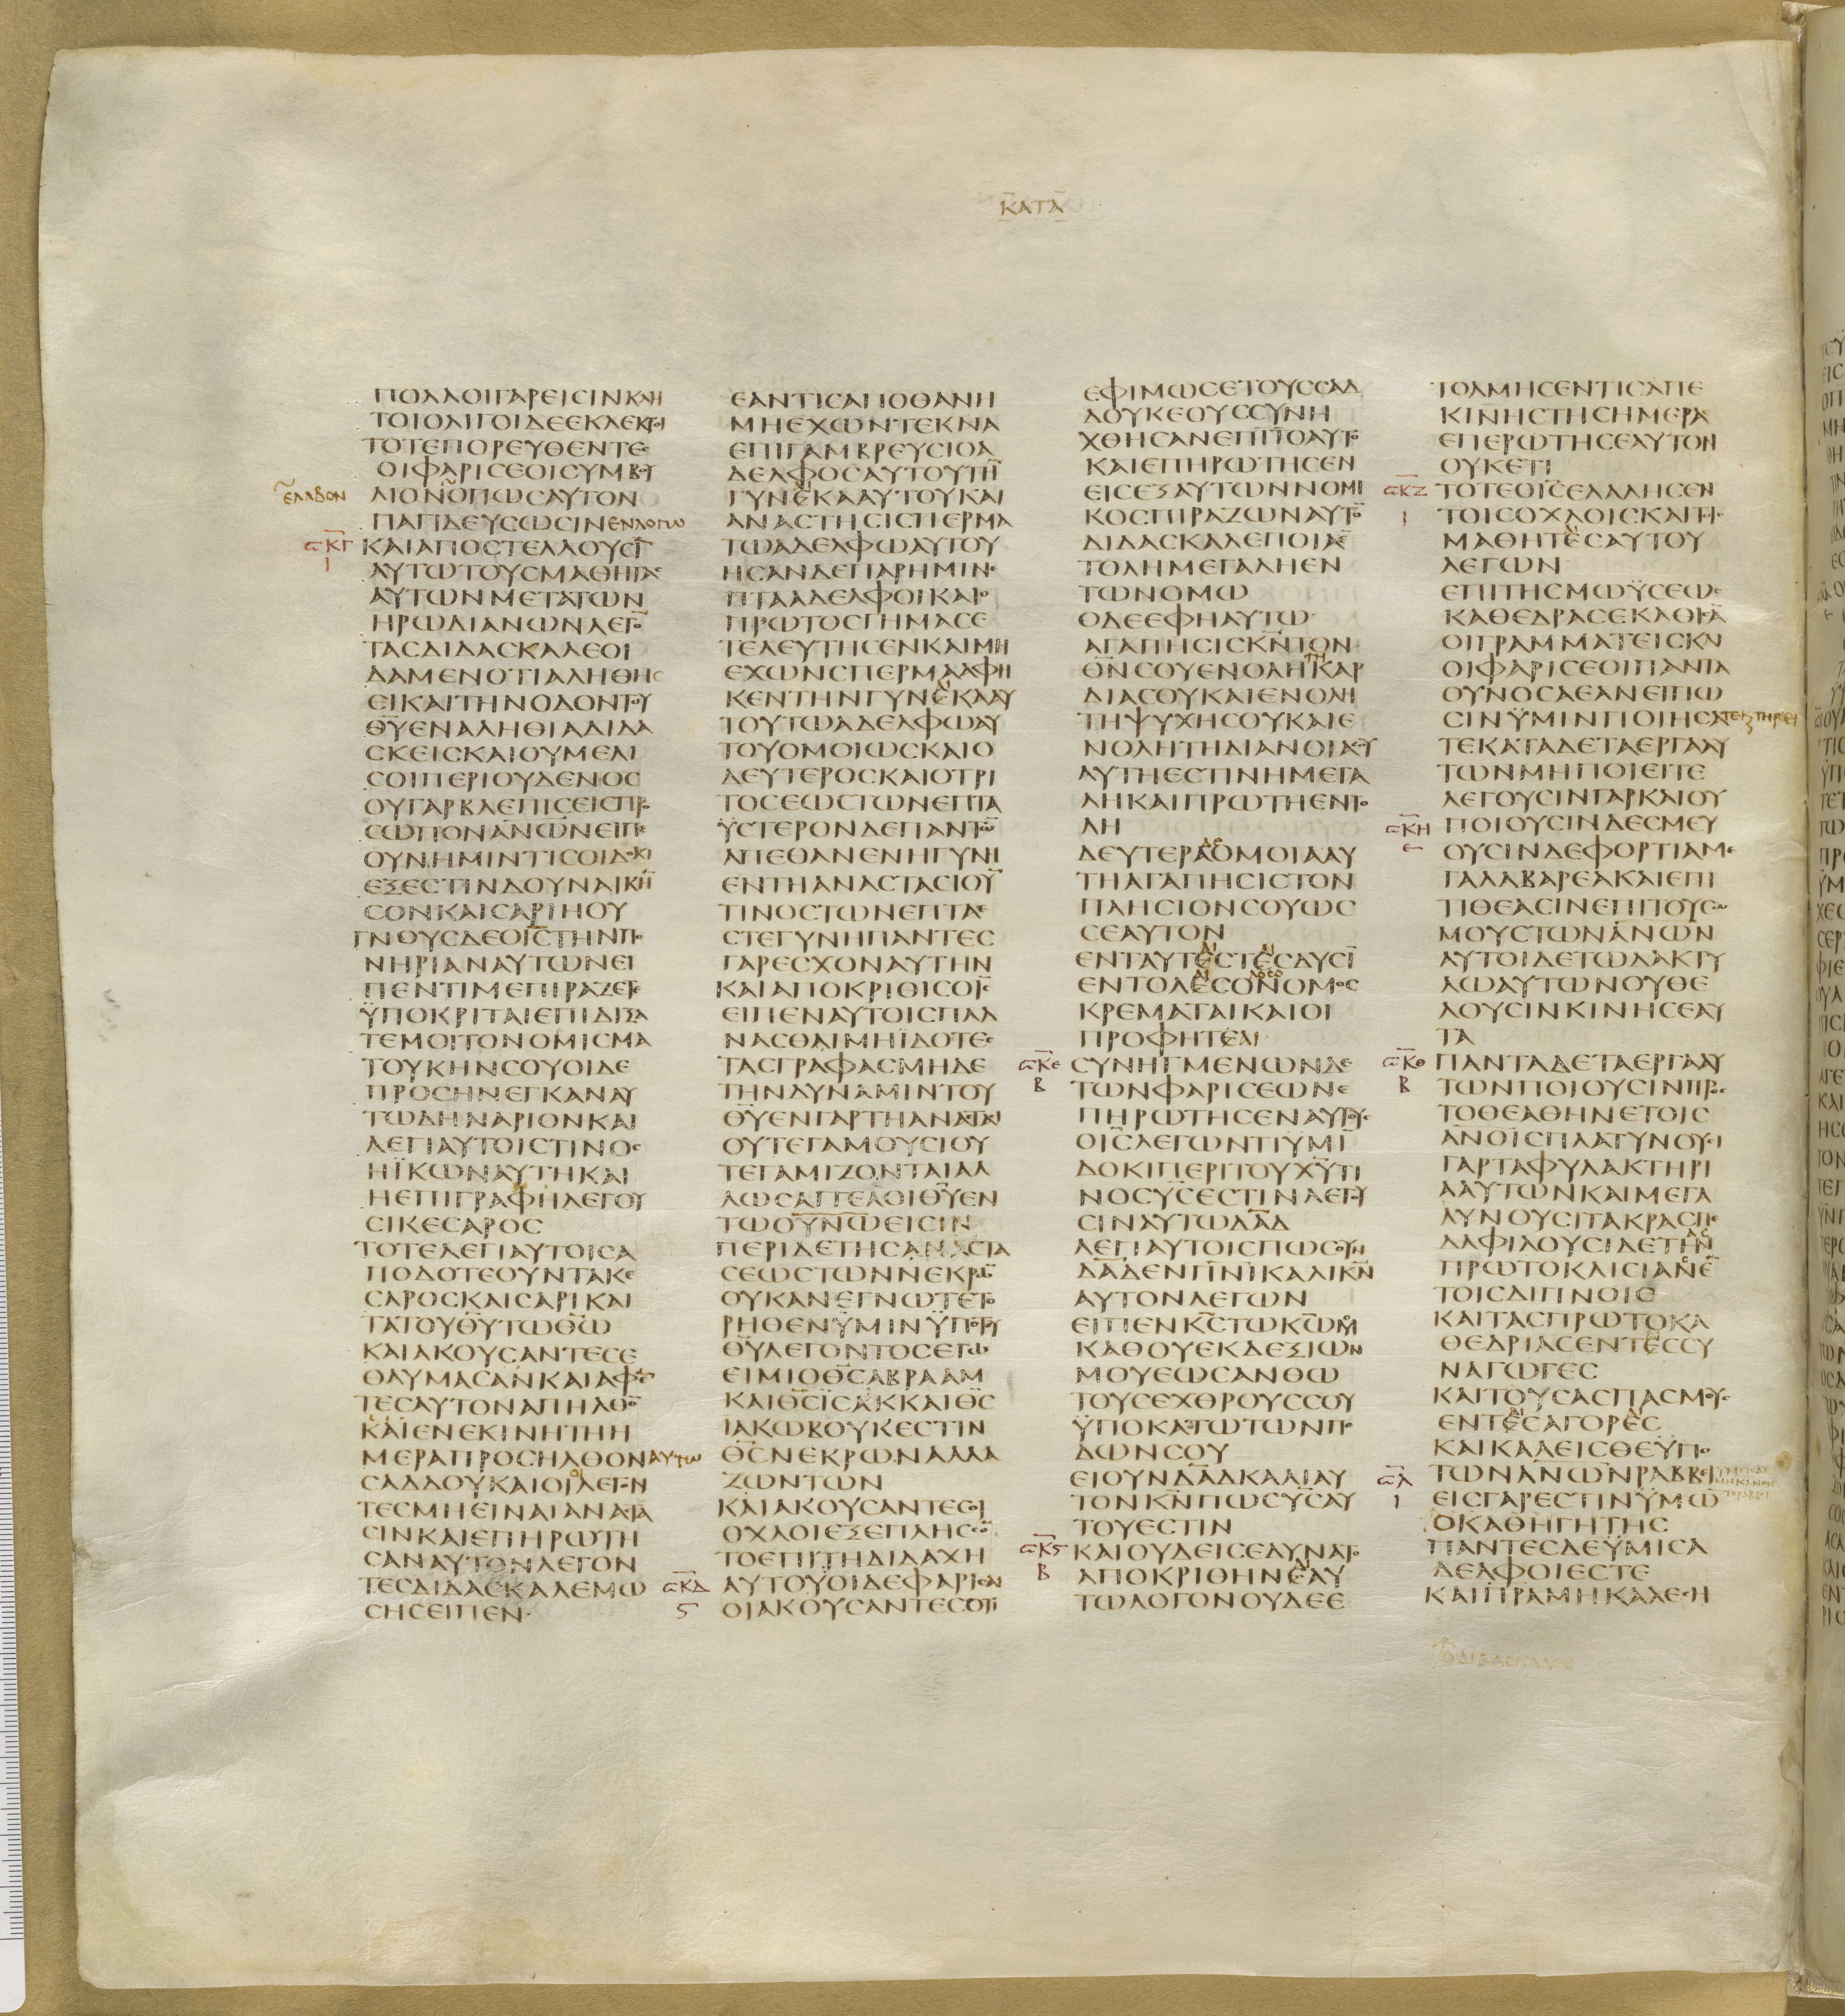 ΚΑΤΑ
ΠΟΛΛΟΙΓΑΡΕΙΣΙΝΚΛΗ
ΤΟΙΟΛΙΓΟΙΔΕΕΚΛΕΚΤΟΙ
ΤΟΤΕΠΟΡΕΥΘΕΝΤΕϹ
ΟΙΦΑΡΙϹΕΟΙϹΥΜΒΟΥ
ΕΛΑΒΟΝ
ΛΙΟΝΟΠΩϹΑΥΤΟΝ
ΠΑΓΙΔΕΥϹΩϹΙΝΕΝΛΟΓΩ
ϹΚΓ
Ι
ΚΑΙΑΠΟϹΤΕΛΛΟΥϹΙ̅
ΑΥΤΩΤΟΥϹΜΑΘΗΤΑϹ
ΑΥΤΩΝΜΕΤΑΤΩΝ
ΗΡΩΔΙΑΝΩΝΛΕΓΟ̅
ΤΑϹΔΙΔΑϹΚΑΛΕΟΙ
ΔΑΜΕΝΟΤΙΑΛΗΘΗϹ
ΕΙΚΑΙΤΗΝΟΔΟΝΤΟΥ
Θ̅Υ̅ΕΝΑΛΗΘΙΑΔΙΔΑ
ϹΚΕΙϹΚΑΙΟΥΜΕΛΙ
ϹΟΙΠΕΡΙΟΥΔΕΝΟϹ
ΟΥΓΑΡΒΛΕΠΙϹΕΙϹΠΡΟ
ϹΩΠΟΝΑ̅Ν̅Ω̅Ν̅ΕΙΠΕ
ΟΥΝΗΜΙΝΤΙϹΟΙΔΟΚΙ
ΕΞΕϹΤΙΝΔΟΥΝΑΙΚΗ̅
ϹΟΝΚΑΙϹΑΡΙΗΟΥ
ΓΝΟΥϹΔΕΟΙ̅Ϲ̅ΤΗΝΠΟ
ΝΗΡΙΑΝΑΥΤΩΝΕΙ
ΠΕΝΤΙΜΕΠΙΡΑΖΕΤΕ
ΫΠΟΚΡΙΤΑΙΕΠΙΔΙΞΑ
ΤΕΜΟΙΤΟΝΟΜΙϹΜΑ
ΤΟΥΚΗΝϹΟΥΟΙΔΕ
ΠΡΟϹΗΝΕΓΚΑΝΑΥ
ΤΩΔΗΝΑΡΙΟΝΚΑΙ
ΛΕΓΙΑΥΤΟΙϹΤΙΝΟϹ
ΗΪΚΩΝΑΥΤΗΚΑΙ
ΗΕΠΙΓΡΑΦΗΛΕΓΟΥ
ϹΙΚΕϹΑΡΟϹ
ΤΟΤΕΛΕΓΙΑΥΤΟΙϹΑ
ΠΟΔΟΤΕΟΥΝΤΑΚΕ
ϹΑΡΟϹΚΑΙϹΑΡΙΚΑΙ
ΤΑΤΟΥΘ̅Υ̅ΤΩΘ̅Ω̅
ΚΑΙΑΚΟΥϹΑΝΤΕϹΕ
ΘΑΥΜΑϹΑΝΚΑΙΑΦΕ̅
ΤΕϹΑΥΤΟΝΑΠΗΛΘΟ̅
ΚΑΙΕΝΕΚΙΝΗΤΗΗ
ΜΕΡΑΠΡΟϹΗΛΘΟΝΑΥΤΩ
ϹΑΔΔΟΥΚΑΙΟΙΛΕΓΟΝ
ΤΕϹΜΗΕΙΝΑΙΑΝΑϹΤΑ
ϹΙΝΚΑΙΕΠΗΡΩΤΗ
ϹΑΝΑΥΤΟΝΛΕΓΟΝ
ΤΕϹΔΙΔΑϹΚΑΛΕΜΩ
ϹΗϹΕΙΠΕΝ·
ΕΑΝΤΙϹΑΠΟΘΑΝΗ
ΜΗΕΧΩΝΤΕΚΝΑ
ΕΠΙΓΑΜΒΡΕΥϹΙΟΑ
ΔΕΛΦΟϹΑΥΤΟΥΤΗ̅
ΓΥΝΕΚΑΑΥΤΟΥΚΑΙ
ΑΝΑϹΤΗϹΙϹΠΕΡΜΑ
ΤΩΑΔΕΛΦΩΑΥΤΟΥ
ΗϹΑΝΔΕΠΑΡΗΜΙΝΕ
ΠΤΑΑΔΕΛΦΟΙΚΑΙΟ
ΠΡΩΤΟϹΓΗΜΑϹΕ
ΤΕΛΕΥΤΗϹΕΝΚΑΙΜΗ
ΕΧΩΝϹΠΕΡΜΑΑΦΗ
ΚΕΝΤΗΝΓΥΝΕΚΑΑΥ
ΤΟΥΤΩΑΔΕΛΦΩΑΥ
ΤΟΥΟΜΟΙΩϹΚΑΙΟ
ΔΕΥΤΕΡΟϹΚΑΙΟΤΡΙ
ΤΟϹΕΩϹΤΩΝΕΠΤΑ
ΫϹΤΕΡΟΝΔΕΠΑΝΤΩ̅
ΑΠΕΘΑΝΕΝΗΓΥΝΙ
ΕΝΤΗΑΝΑϹΤΑϹΙΟΥ̅
ΤΙΝΟϹΤΩΝΕΠΤΑΕ
ϹΤΕΓΥΝΗΠΑΝΤΕϹ
ΓΑΡΕϹΧΟΝΑΥΤΗΝ
ΚΑΙΑΠΟΚΡΙΘΙϹΟΙ̅Ϲ̅
ΕΙΠΕΝΑΥΤΟΙϹΠΛΑ
ΝΑϹΘΑΙΜΗΪΔΟΤΕϹ
ΤΑϹΓΡΑΦΑϹΜΗΔΕ
ΤΗΝΔΥΝΑΜΙΝΤΟΥ
Θ̅Υ̅ΕΝΓΑΡΤΗΑΝΑϹΤΑϹΙ
ΟΥΤΕΓΑΜΟΥϹΙΟΥ
ΤΕΓΑΜΙΖΟΝΤΑΙΑΛ
ΛΩϹΑΓΓΕΛΟΙΘ̅Υ̅ΕΝ
ΤΩΟΥ̅Ν̅Ω̅ΕΙϹΙΝ
ΠΕΡΙΔΕΤΗϹΑΝΑϹΤΑ
ϹΕΩϹΤΩΝΝΕΚΡΩ̅
ΟΥΚΑΝΕΓΝΩΤΕΤΟ
ΡΗΘΕΝΫΜΙΝΫΠΟΤΟΥ
Θ̅Υ̅ΛΕΓΟΝΤΟϹΕΓΩ
ΕΙΜΙΟΘ̅Ϲ̅ΑΒΡΑΑΜ
ΚΑΙΘ̅Ϲ̅ΪϹΑΚΚΑΙΘ̅Ϲ̅
ΙΑΚΩΒΟΥΚΕϹΤΙΝ
Θ̅Ϲ̅ΝΕΚΡΩΝΑΛΛΑ
ΖΩΝΤΩΝ
ΚΑΙΑΚΟΥϹΑΝΤΕϹΟΙ
ΟΧΛΟΙΕΞΕΠΛΗϹϹΟ̅
ΤΟΕΠΙΤΗΔΙΔΑΧΗ
ϹΚΔ
Ϛ
ΑΥΤΟΥΟΙΔΕΦΑΡΙϹΑΙ
ΟΙΑΚΟΥϹΑΝΤΕϹΟΤΙ
ΕΦΙΜΩϹΕΤΟΥϹϹΑΔ
ΔΟΥΚΕΟΥϹϹΥΝΗ
ΧΘΗϹΑΝΕΠΙΤΟΑΥΤΟ
ΚΑΙΕΠΗΡΩΤΗϹΕΝ
ΕΙϹΕΞΑΥΤΩΝΝΟΜΙ
ΚΟϹΠΙΡΑΖΩΝΑΥΤΟ̅
ΔΙΔΑϹΚΑΛΕΠΟΙΑΕ̅
ΤΟΛΗΜΕΓΑΛΗΕΝ
ΤΩΝΟΜΩ
ΟΔΕΕΦΗΑΥΤΩ
ΑΓΑΠΗϹΙϹΚ̅Ν̅ΤΟΝ
Θ̅Ν̅ϹΟΥΕΝΟΛΗΤΗΚΑΡ
ΔΙΑϹΟΥΚΑΙΕΝΟΛΗ
ΤΗΨΥΧΗϹΟΥΚΑΙΕ
ΝΟΛΗΤΗΔΙΑΝΟΙΑϹΟΥ
ΑΥΤΗΕϹΤΙΝΗΜΕΓΑ
ΛΗΚΑΙΠΡΩΤΗΕΝΤΟ
ΛΗ
ΔΕΥΤΕΡΑΔΕΟΜΟΙΑΑΥ
ΤΗΑΓΑΠΗϹΙϹΤΟΝ
ΠΛΗϹΙΟΝϹΟΥΩϹ
ϹΕΑΥΤΟΝ
ΕΝΤΑΥΤΕϹΤΕϹΔΥϹΙ̅
ΕΝΤΟΛΕϹΟΝΟΜΟϹ
ΚΡΕΜΑΤΑΙΚΑΙΟΙ
ΠΡΟΦΗΤΕΑΙ·
ϹΚΕ
Β
ϹΥΝΗΓΜΕΝΩΝΔΕ
ΤΩΝΦΑΡΙϹΕΩΝΕ
ΠΗΡΩΤΗϹΕΝΑΥΤΟΥϹ
ΟΙ̅Ϲ̅ΛΕΓΩΝΤΙΫΜΙ̅
ΔΟΚΙΠΕΡΙΤΟΥΧ̅Υ̅ΤΙ
ΝΟϹΥ̅Ϲ̅ΕϹΤΙΝΛΕΓΟΥ
ϹΙΝΑΥΤΩΔ̅Α̅Δ̅
ΛΕΓΙΑΥΤΟΙϹΠΩϹΟΥΝ
Δ̅Α̅Δ̅ΕΝΠ̅Ν̅Ι̅ΚΑΛΙΚ̅Ν̅
ΑΥΤΟΝΛΕΓΩΝ
ΕΙΠΕΝΚ̅Ϲ̅ΤΩΚ̅Ω̅ΜΟΥ
ΚΑΘΟΥΕΚΔΕΞΙΩΝ
ΜΟΥΕΩϹΑΝΘΩ
ΤΟΥϹΕΧΘΡΟΥϹϹΟΥ
ΫΠΟΚΑΤΩΤΩΝΠΟ
ΔΩΝϹΟΥ
ΕΙΟΥΝΔ̅Α̅Δ̅ΚΑΛΙΑΥ
ΤΟΝΚ̅Ν̅ΠΩϹΥ̅Ϲ̅ΑΥ
ΤΟΥΕϹΤΙΝ
ϹΚϚ
Β
ΚΑΙΟΥΔΕΙϹΕΔΥΝΑΤΟ
ΑΠΟΚΡΙΘΗΝΕΑΥ
ΤΩΛΟΓΟΝΟΥΔΕΕ
ΤΟΛΜΗϹΕΝΤΙϹΑΠΕ
ΚΙΝΗϹΤΗϹΗΜΕΡΑ
ΕΠΕΡΩΤΗϹΕΑΥΤΟΝ
ΟΥΚΕΤΙ
ϹΚΖ
Ι
ΤΟΤΕΟΙ̅Ϲ̅ΕΛΑΛΗϹΕΝ
ΤΟΙϹΟΧΛΟΙϹΚΑΙΤΟΙϹ
ΜΑΘΗΤΕϹΑΥΤΟΥ
ΛΕΓΩΝ
ΕΠΙΤΗϹΜΩΫϹΕΩϹ
ΚΑΘΕΔΡΑϹΕΚΑΘΙϹΑ̅
ΟΙΓΡΑΜΜΑΤΕΙϹΚΑΙ
ΟΙΦΑΡΙϹΕΟΙΠΑΝΤΑ
ΟΥΝΟϹΑΕΑΝΕΙΠΩ
ϹΙΝΫΜΙΝΠΟΙΗϹΑΤΕ
ΤΕΚΑΤΑΔΕΤΑΕΡΓΑΑΥ
ΤΩΝΜΗΠΟΙΕΙΤΕ
ΛΕΓΟΥϹΙΝΓΑΡΚΑΙΟΥ
ϹΚΗ
Ε
ΠΟΙΟΥϹΙΝΔΕϹΜΕΥ
ΟΥϹΙΝΔΕΦΟΡΤΙΑΜΕ
ΓΑΛΑΒΑΡΕΑΚΑΙΕΠΙ
ΤΙΘΕΑϹΙΝΕΠΙΤΟΥϹΩ
ΜΟΥϹΤΩΝΑ̅Ν̅Ω̅Ν̅
ΑΥΤΟΙΔΕΤΩΔΑΚΤΥ
ΛΩΑΥΤΩΝΟΥΘΕ
ΛΟΥϹΙΝΚΙΝΗϹΕΑΥ
ΤΑ
ϹΚΘ
Β
ΠΑΝΤΑΔΕΤΑΕΡΓΑΑΥ
ΤΩΝΠΟΙΟΥϹΙΝΠΡΟϹ
ΤΟΘΕΑΘΗΝΕΤΟΙϹ
Α̅Ν̅Ο̅Ι̅Ϲ̅ΠΛΑΤΥΝΟΥϹΙ
ΓΑΡΤΑΦΥΛΑΚΤΗΡΙ
ΑΑΥΤΩΝΚΑΙΜΕΓΑ
ΛΥΝΟΥϹΙΤΑΚΡΑϹΠΕ
ΔΑΦΙΛΟΥϹΙΔΕΤΗΝ
ΠΡΩΤΟΚΛΙϹΙΑΝΕ̅
ΤΟΙϹΔΙΠΝΟΙϹ
ΚΑΙΤΑϹΠΡΩΤΟΚΑ
ΘΕΔΡΙΑϹΕΝΤΕϹϹΥ
ΝΑΓΩΓΕϹ
ΚΑΙΤΟΥϹΑϹΠΑϹΜΟΥϹ
ΕΝΤΕϹΑΓΟΡΕϹ
ΚΑΙΚΑΛΕΙϹΘΕΫΠΟ
ϹΛ
Ι
ΤΩΝΑ̅Ν̅Ω̅Ν̅ΡΑΒΒΕΙ
ΕΙϹΓΑΡΕϹΤΙΝΫΜΩ̅
ΟΚΑΘΗΓΗΤΗϹ
ΠΑΝΤΕϹΔΕΫΜΙϹΑ
ΔΕΛΦΟΙΕϹΤΕ
ΚΑΙΠ̅Ρ̅ΑΜΗΚΑΛΕϹΗ
ΟΔΙΔΑϹΚΑΛΟϹ